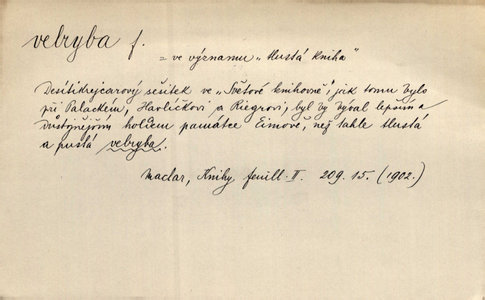 velryba f.
= ve významu „tlustá kniha"
Desítikrejcarový sešitek ve „Světové knihovně", jak tomu bylo
při Palackém, Havlíčkovi a Riegrovi, byl by býval lepším a
důstojnějším holdem památce Eimově, než tahle tlustá
a pustá velryba.
Machar, Knihy feuill. II. 209. 15. (1902.)